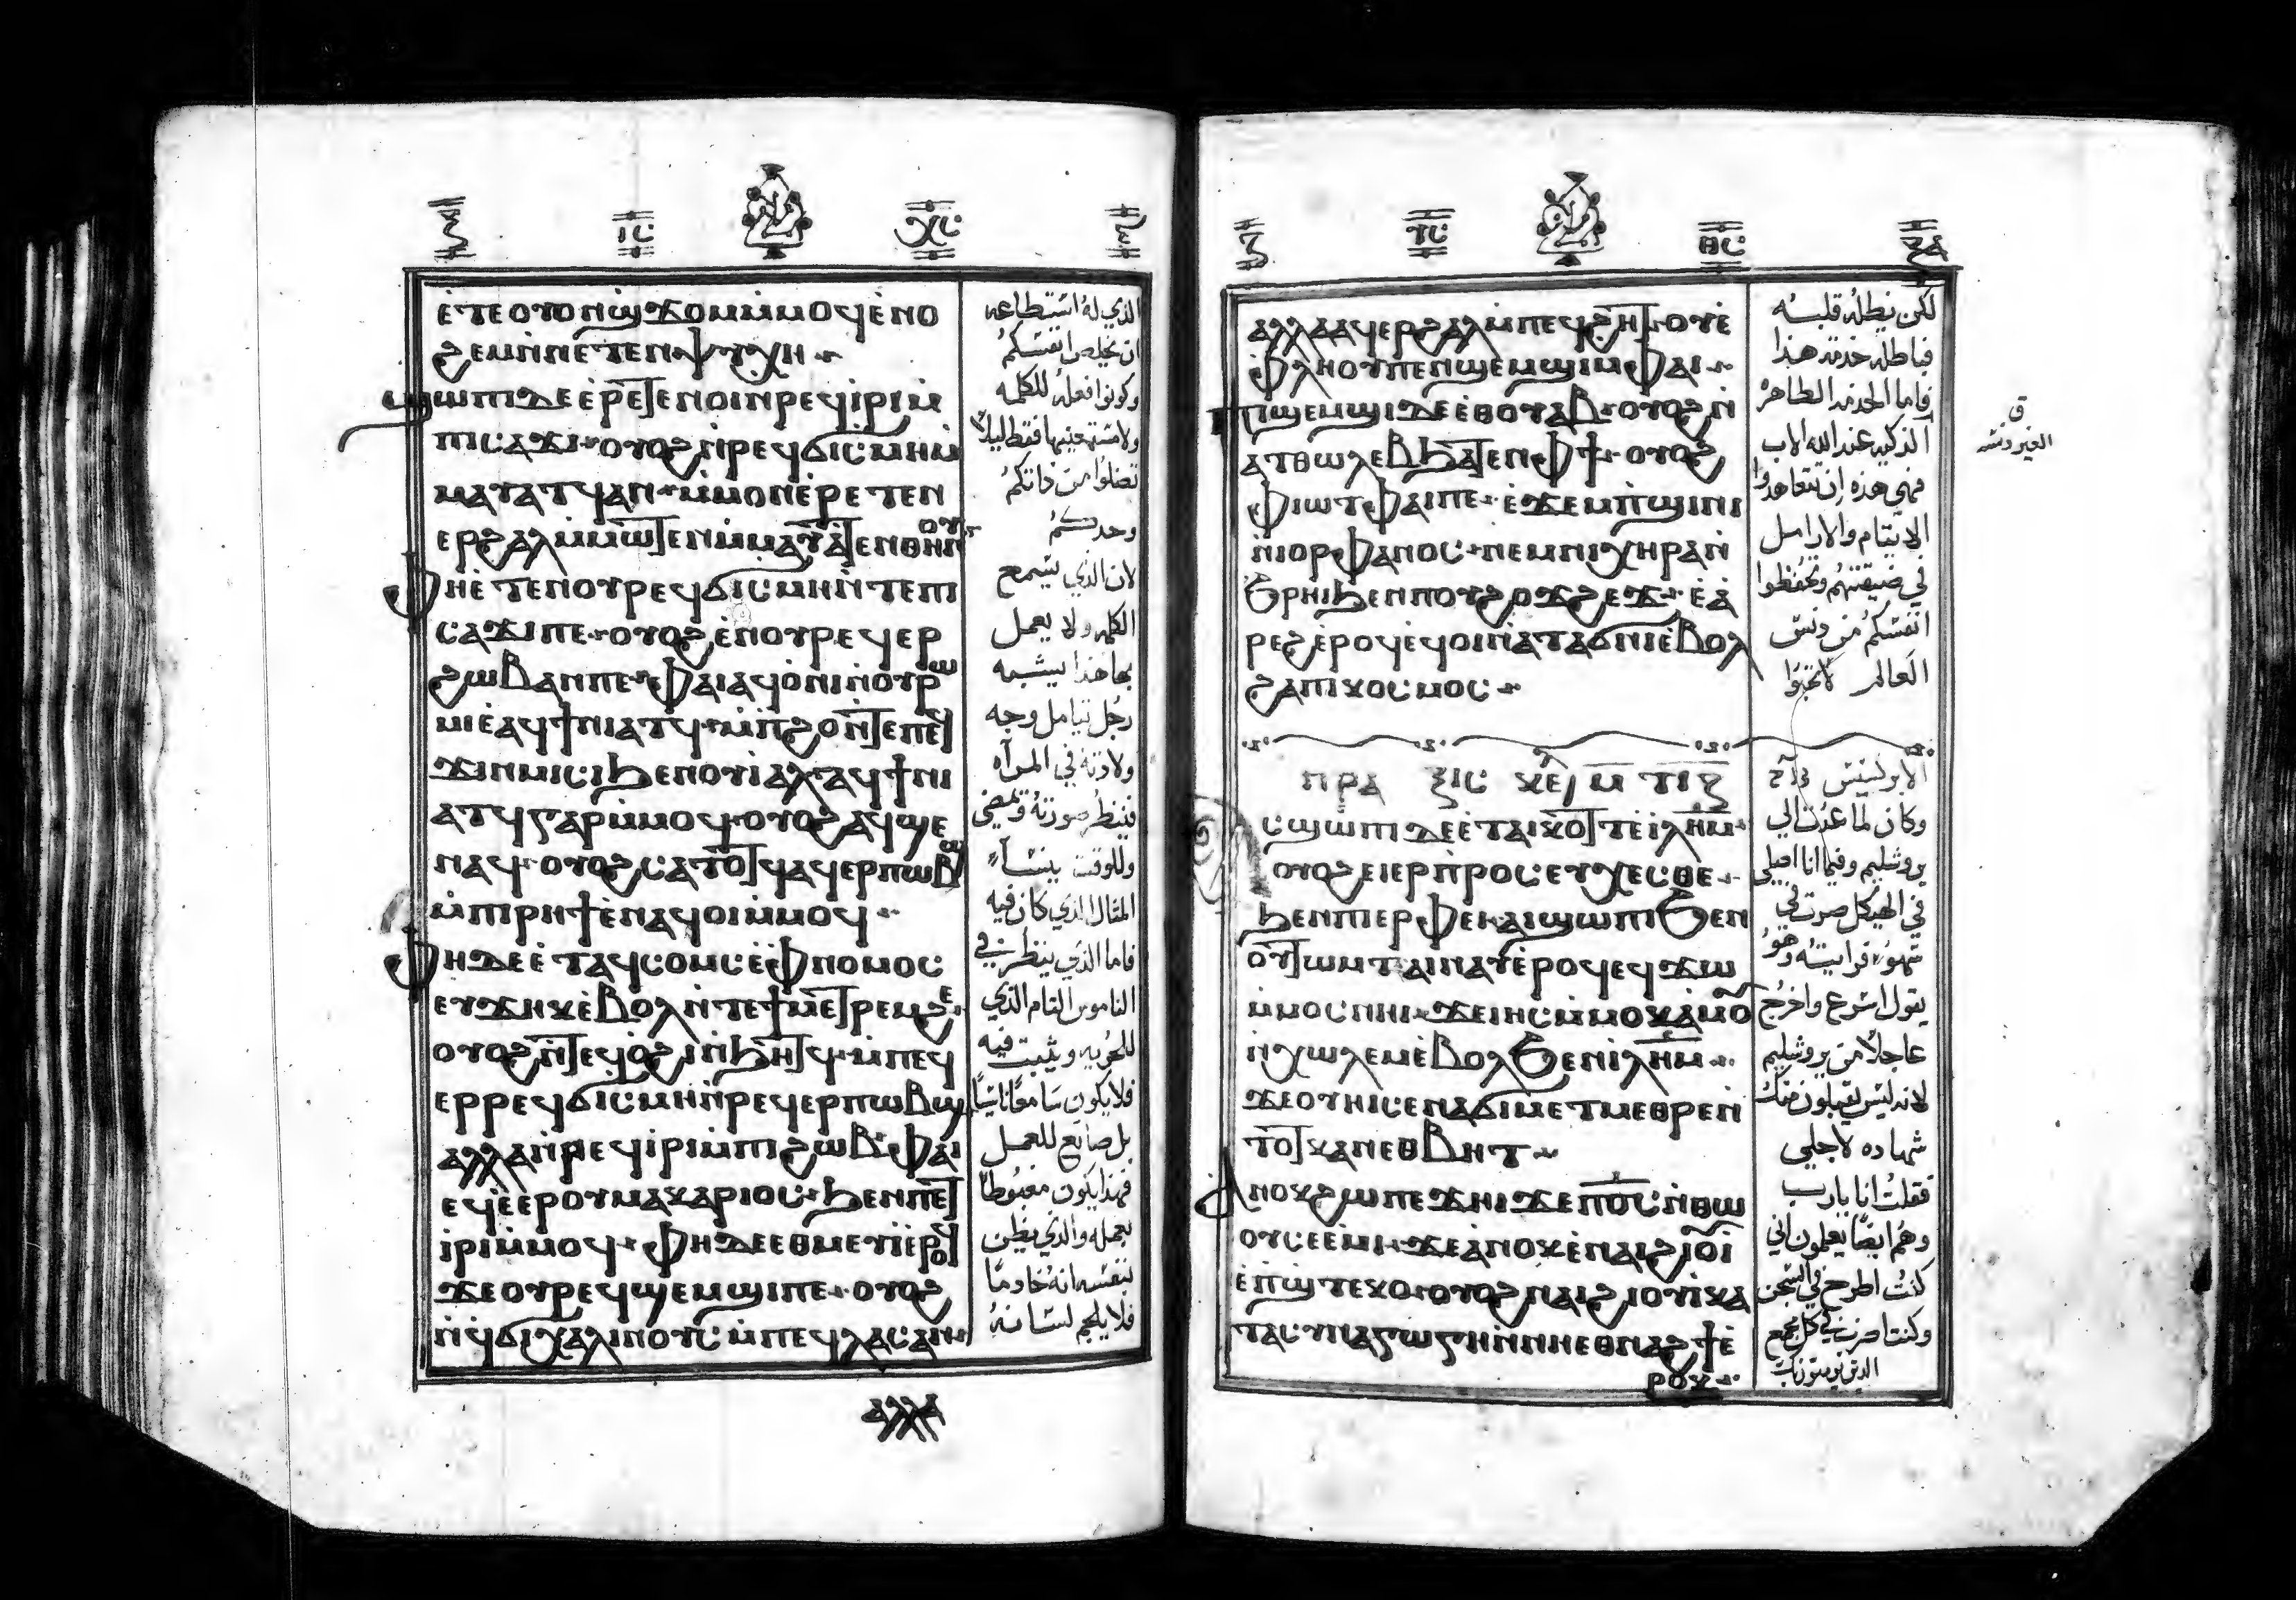 ⲓ̅ⲥ̅
ⲭ̅ⲥ̅
ⲉ̀ⲧⲉⲟⲩⲟⲛϣϫⲟⲙⲙ̀ⲙⲟϥⲉ̀ⲛⲟ
ϩⲉⲙⲛ̀ⲛⲉⲧⲉⲛⲯⲩⲭⲏ
ϣⲱⲡⲓⲇⲉⲉ̀ⲣⲉⲧⲉⲛⲟⲓⲛⲣⲉϥⲓ̀ⲣⲓⲙ̀
ⲡⲓⲥⲁϫⲓ ⲟⲩⲟϩⲛ̀ⲣⲉϥϭⲓⲥⲙⲏⲙ̀
ⲙⲁⲩⲁⲧϥⲁⲛ ⲙ̀ⲙⲟⲛⲉ̀ⲣⲉⲧⲉⲛ
ⲉⲣϩⲁⲗⲙ̀ⲙⲱⲧⲉⲛⲙ̀ⲙⲁⲩⲁⲧⲉⲛⲑⲏⲛⲟⲩ
ⲫⲏⲉ̀ⲧⲉⲛⲟⲩⲣⲉϥϭⲓⲥⲙⲏⲛ̀ⲧⲉⲡⲓ
ⲥⲁϫⲓⲡⲉ ⲟⲩⲟϩⲉ̀ⲛⲟⲩⲣⲉϥⲉⲣ
ϩⲱⲃⲁⲛⲡⲉ ⲫⲁⲓⲁϥⲟ̀ⲛⲓⲛ̀ⲟⲩⲣⲱ
ⲙⲓⲉ̀ⲁϥϯⲛⲓⲁⲧϥ ⲙ̀ⲡϩⲟⲛ̀ⲧⲉⲡⲉϥ
ϫⲓⲛⲙⲓⲥⲓϧⲉⲛⲟⲩⲓⲁⲗ ⲁϥϯⲛⲓ
ⲁⲧϥⲅⲁⲣⲙ̀ⲙⲟϥ ⲟⲩⲟϩⲁϥϣⲉ
ⲛⲁϥ ⲟⲩⲟϩⲥⲁⲧⲟⲧϥⲁϥⲉⲣⲡⲱⲃϣ
ⲙ̀ⲡⲓⲣⲏϯⲉ̀ⲛⲁϥⲟⲓⲙ̀ⲙⲟϥ
ⲫⲏⲇⲉⲉ̀ⲧⲁϥⲥⲟⲙⲥⲉ̀ⲫⲛⲟⲙⲟⲥ
ⲉⲧϫⲏⲕⲉ̀ⲃⲟⲗⲛ̀ⲧⲉϯⲙⲉⲧⲣⲉⲙϩⲉ
ⲟⲩⲟϩⲛ̀ⲧⲉϥⲟ̀ϩⲓⲛ̀ϧⲏⲧϥ ⲙ̀ⲡⲉϥ
ⲉⲣⲣⲉϥϭⲓⲥⲙⲏⲛ̀ⲣⲉϥⲉⲣⲡⲱⲃϣ
ⲁⲗⲗⲁⲛ̀ⲣⲉϥⲓ̀ⲣⲓⲙ̀ⲡⲓϩⲱⲃ ⲫⲁⲓ
ⲉϥⲉ̀ⲉⲣⲟⲩⲙⲁⲕⲁⲣⲓⲟⲥ ϧⲉⲛⲡⲉϥ
ⲓ̀ⲣⲓⲙ̀ⲙⲟϥ ⲫⲏⲇⲉⲉⲑⲙⲉⲩⲓ̀ⲉⲣⲟϥ
ϫⲉⲟⲩⲣⲉϥϣⲉⲙϣⲓⲡⲉ ⲟⲩⲟϩ
ⲛ̀ϥϭⲓⲭⲁⲗⲓⲛⲟⲩⲥⲙ̀ⲡⲉϥⲗⲁⲥⲁⲛ
ⲁⲗⲗⲁ
الذي له استطاعه
ان يخلص انفسكم
وكونوا فعله للكلمه
ولا مستمعيها فقط ليلا
تضلوا من ذاتكم
وحدكم
لان الذي يسمع
الكلمه ولا يعمل
بها هذا يشبه
رجل تيامل وجه
ولادته في المرآه
فينظر صورته ويمضي
وللوقت ينسا
المثال الذي كان فيه
فاما الذي ينظر في
الناموس التام الذي
للحريه ويثبت فيه
فلا يكون سامعا ناسيا
بل صانع للعمل
فهذا يكون مغبوطا
بعمله والذي يظن
بنفسه انه خادما
فلا يلجم لسانه
ⲩ̅ⲥ̅
ⲑ̅ⲥ̅
ⲁⲗⲗⲁⲁϥⲉⲣϩⲁⲗⲙ̀ⲡⲉϥϩⲏⲧ ⲟⲩⲉ̀
ⲫⲗⲏⲟⲩⲡⲉⲡϣⲉⲙϣⲓⲙ̀ⲫⲁⲓ
ⲡϣⲉⲙϣⲓⲇⲉⲉⲑⲟⲩⲁⲃ ⲟⲩⲟϩⲛ̀
ⲁⲧⲑⲱⲗⲉⲃϧⲁⲧⲉⲛⲫϯ ⲟⲩⲟϩ
ⲫⲓⲱⲧⲫⲁⲓⲡⲉ ⲉ̀ϫⲉⲙⲡ̀ϣⲓⲛⲓ
ⲛ̀ⲛⲓⲟⲣⲫⲁⲛⲟⲥ ⲛⲉⲙⲛⲓⲭⲏⲣⲁⲛ̀
ϩ̀ⲣⲏⲓϧⲉⲛⲡⲟⲩϩⲟϫϩⲉϫ ⲉ̀ⲁ̀
ⲣⲉϩⲉ̀ⲣⲟϥⲉϥⲟⲓⲛ̀ⲁⲧⲁϭⲛⲓⲉ̀ⲃⲟⲗ
ϩⲁⲡⲓⲕⲟⲥⲙⲟⲥ
ⲡⲣⲁ ⲝⲓⲥ
ⲥϣⲱⲡⲓⲇⲉⲉ̀ⲧⲁⲓⲕⲟⲧⲧⲉⲓ̀ⲗⲏⲙ
ⲟⲩⲟϩⲉⲓⲉⲣⲡ̀ⲣⲟⲥⲉⲩⲭⲉⲥⲑⲉ
ϧⲉⲛⲡⲓⲉⲣⲫⲉⲓ ⲁⲓϣⲱⲡⲓϧⲉⲛ
ⲟⲩⲧⲱⲙⲧ ⲁⲓⲛⲁⲩⲉ̀ⲣⲟϥⲉϥϫⲱ
ⲙ̀ⲙⲟⲥⲛⲏⲓ ϫⲉⲓⲏⲥⲙ̀ⲙⲟⲕⲁ̀ⲙⲟⲩ
ⲛ̀ⲭⲱⲗⲉⲙⲉ̀ⲃⲟⲗϧⲉⲛⲓⲗⲏⲙ
ϫⲉⲟⲩⲏⲓⲥⲉⲛⲁϭⲓⲙⲉⲧⲙⲉⲑⲣⲉⲛ̀
ⲧⲟⲧⲕⲁⲛⲉⲑⲃⲏⲧ
ⲁⲛⲟⲕϩⲱⲡⲉϫⲏⲓϫⲉⲡⲟ̅ⲥ̅ⲛ̀ⲑⲱ
ⲟⲩⲥⲉⲉⲙⲓ ϫⲉⲁ̀ⲛⲟⲕⲉ̀ⲛⲁⲓϩⲓⲟⲩⲓ̀
ⲉ̀ⲡ̀ϣⲧⲉⲕⲟ ⲟⲩⲟϩⲛⲁⲓϩⲓⲟⲩⲓ̀ⲕⲁ
ⲧⲁⲥⲩⲛⲁⲅⲱⲅⲏⲛ̀ⲛⲏⲉⲑⲛⲁϩϯⲉ̀
ⲣⲟⲕ
لكن يطله قلبه
فباطله خدمة هذا
فاما الخدمه الطاهره
الذكيه عند الله الاب
فهي هذه ان تتعاهدوا
الايتام والارامل
في ضيقتهم وتحفظوا
انفسكم من دنس
العالم لا تحبوا
الابركسيس
وكان لما عدت الي
يروشليم وفيما انا اصلي
في الهيكل صرت في
سهو فرايته وهو
يقول اسرع واخرج
عاجلا من يروشليم
لانه ليس يقبلون منك
شهاده لاجلي
فقلت انا يارب
وهم ايضا يعلمون اني
كنت اطرح في السجن
وكنت اضرب في كل مجمع
الذين يومنون بك